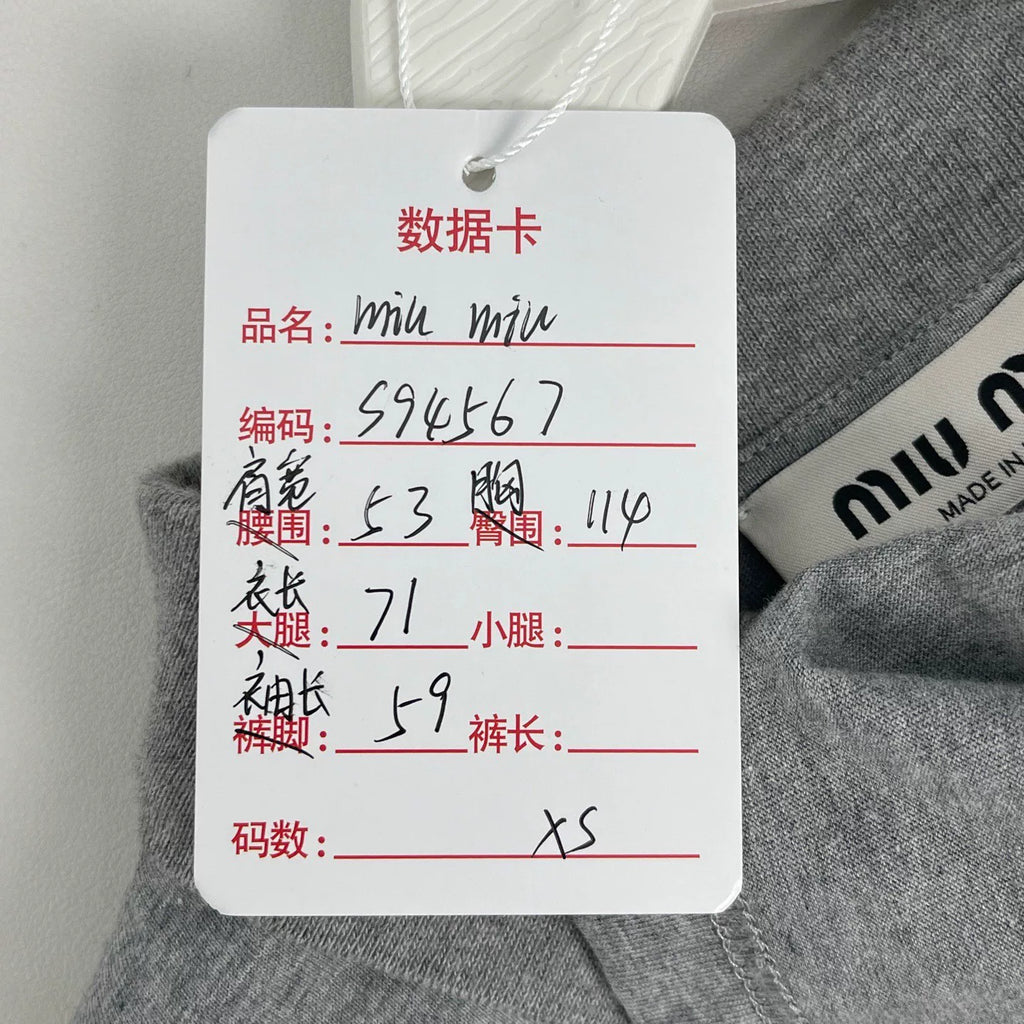 数据卡
品名: miu miu
编码: S94567
肩宽 胸
腰围: 53 臀围: 114
衣长
大腿: 71 小腿:
袖长
裤脚: 59 裤长:
码数: XS
MIU
MADE IN